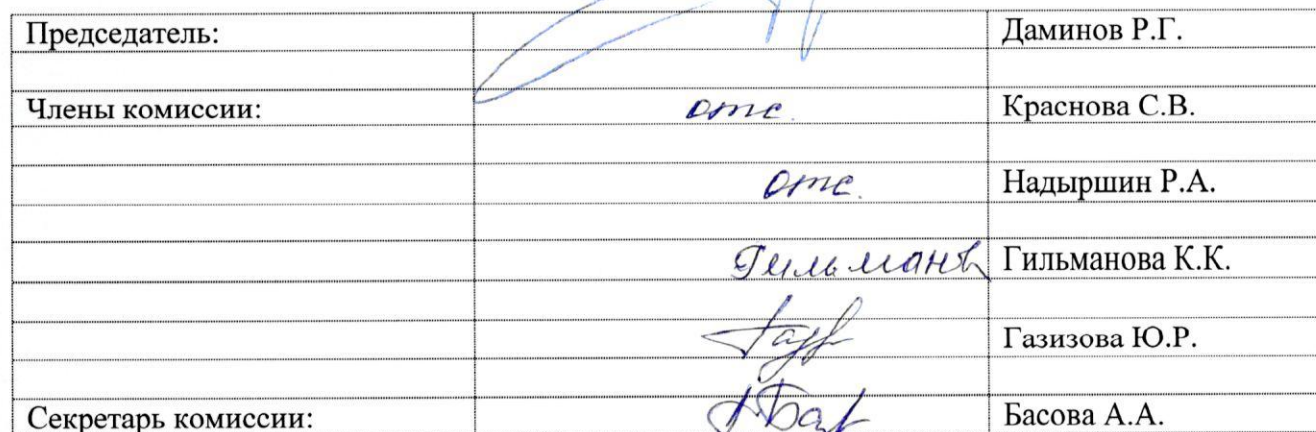 Председатель: Даминов Р.Г.
Члены комиссии: отс. Краснова С.В.
отс. Надыршин Р.А.
Гильмано Гильманова К.К.
Газизова Ю.Р.
Секретарь комиссии: Басова А.А.